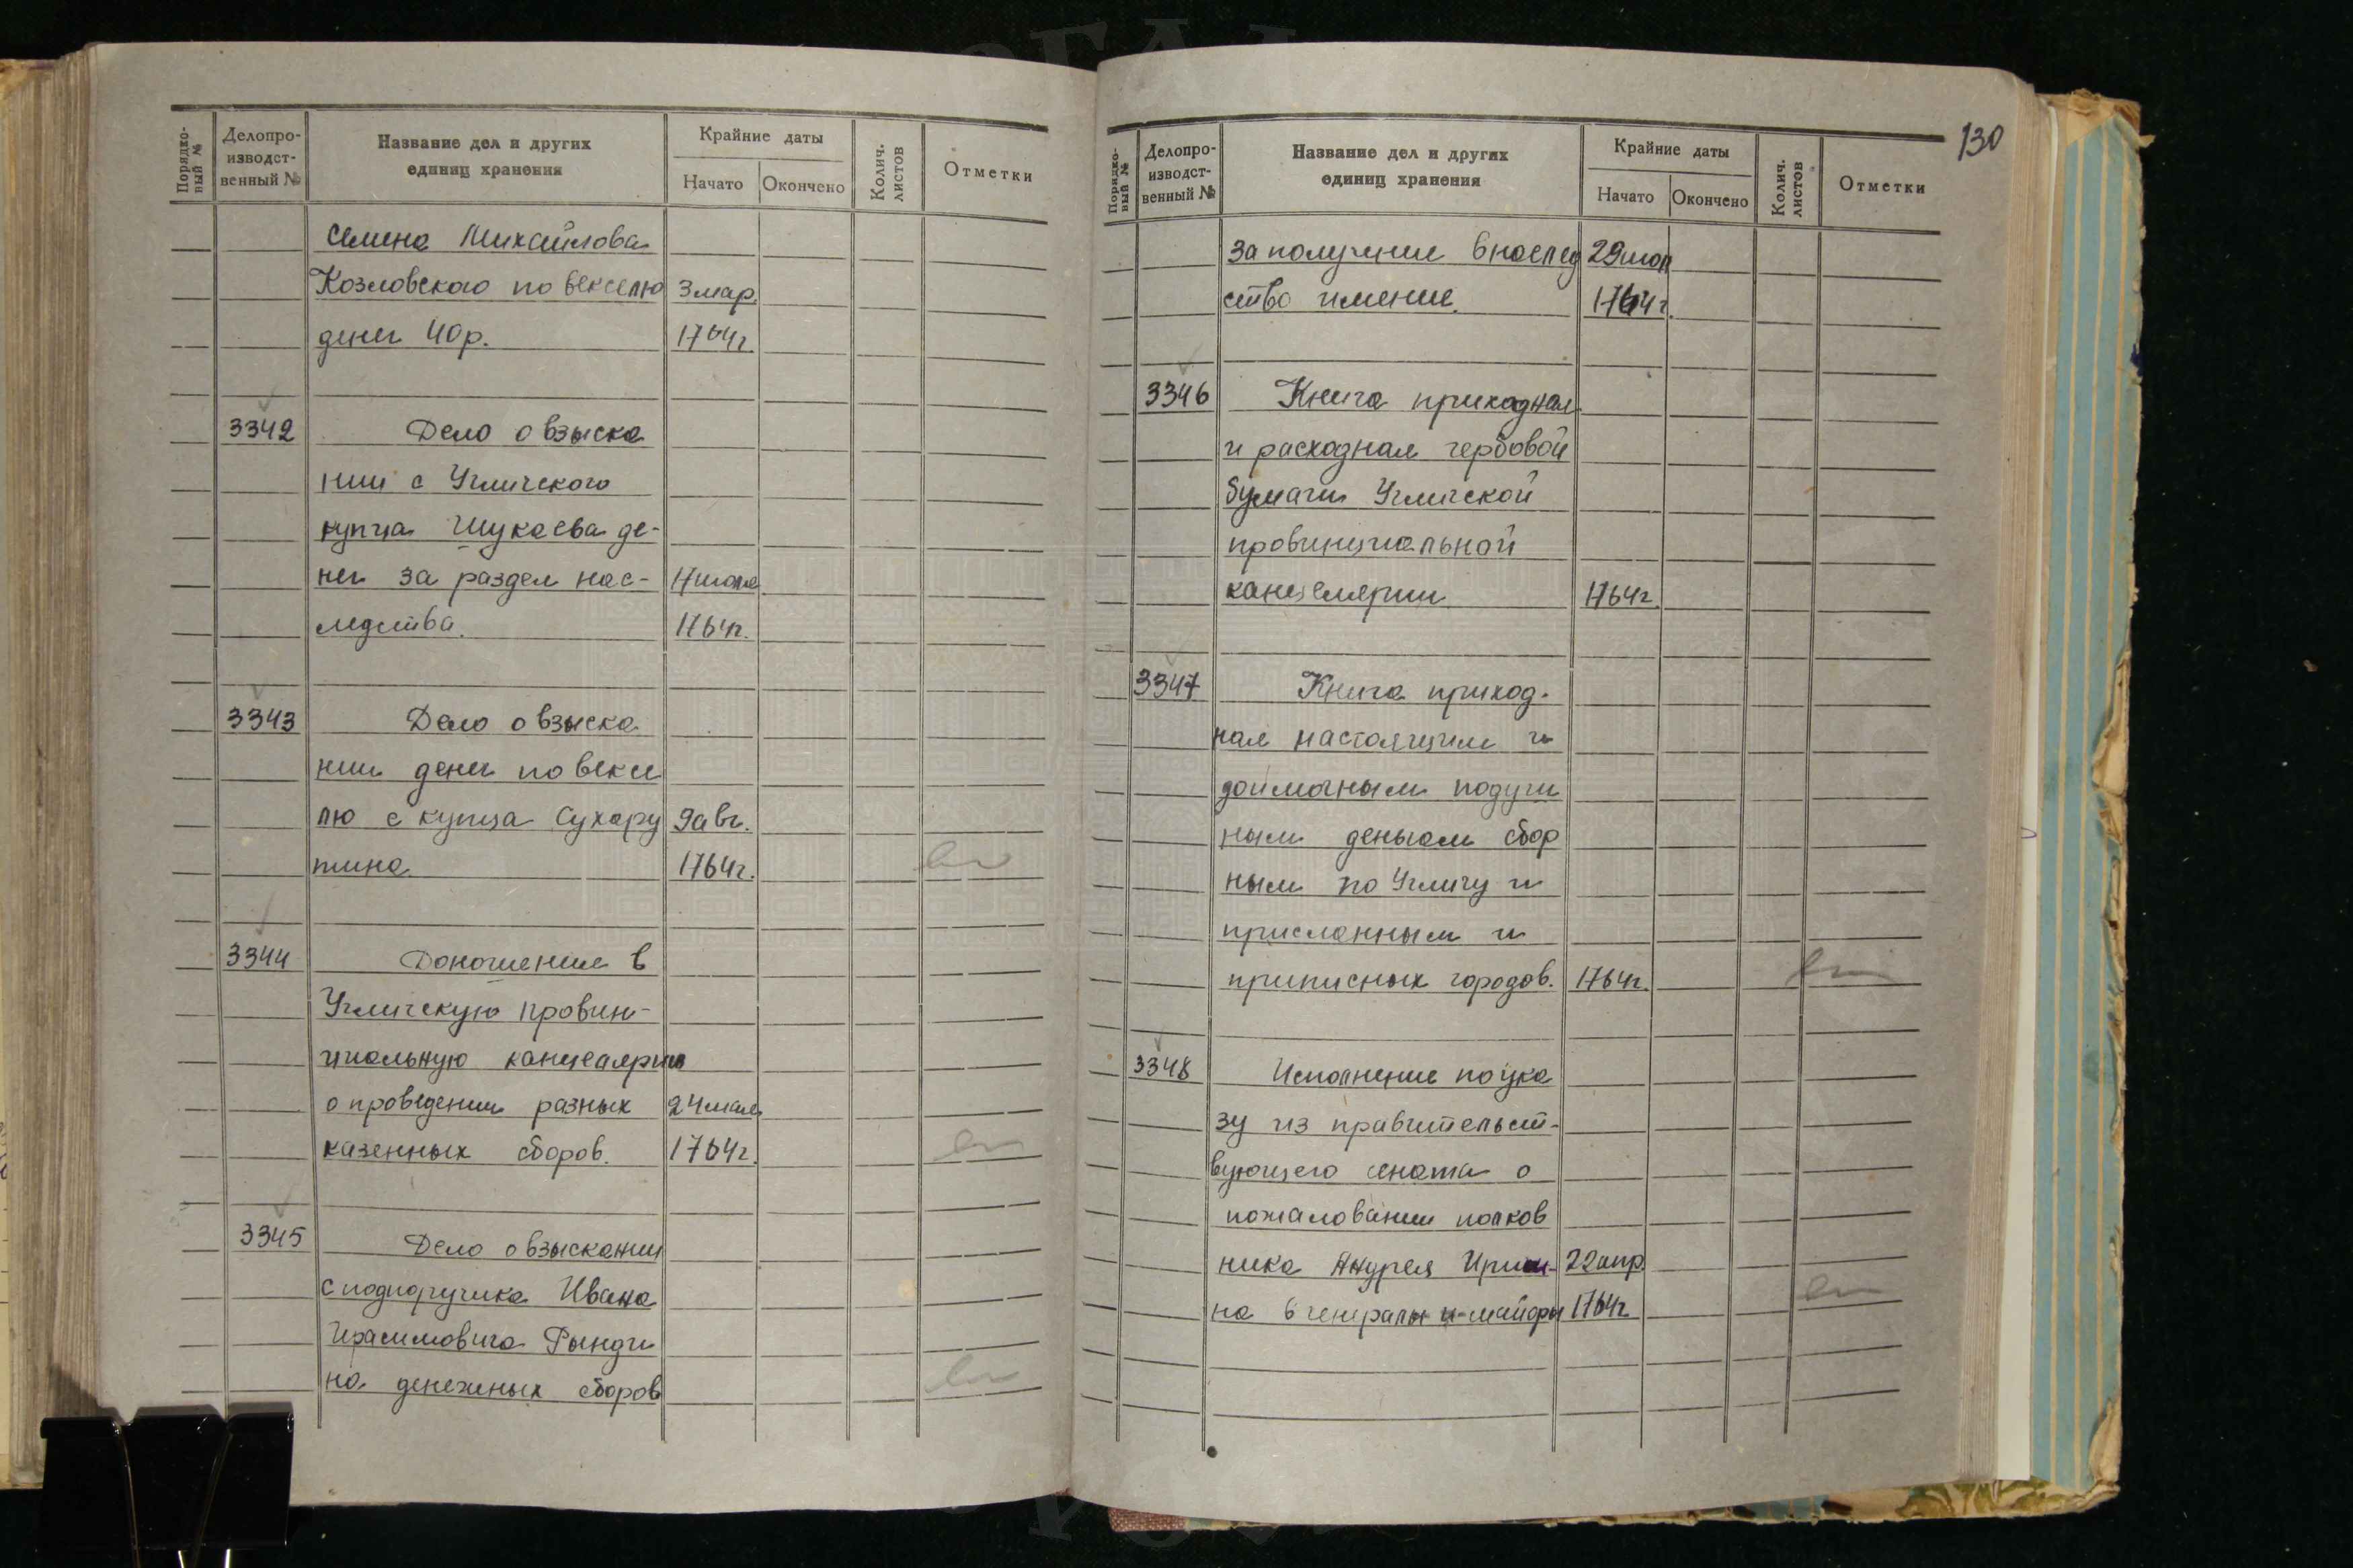 Порядко-
вый №
Делопро-
изводст-
венный №
Название дел и других
единиц хранения
Крайние даты
Начато
Окончено
Колич.
листов
Отметки
Семена Михайлова
Козловского по векселю 3 мар.
денег 40 р. 1764 г.
3342 Дело о взыска
нии с Угличского
купца Шукаева де-
нег за раздел нас- 17 июля
ледства. 1764 г.
3343 Дело о взыска
нии денег по вексе
лю с купца Сухару 9 авг.
1764 г.
3344 Доношение в
Угличскую провин-
циальную канцелярию
о проведении разных 24 мая
казенных сборов. 1764 г.
3345 Дело о взыскании
с подпоручика Ивана
Ирасимовича Рынди
на денежных сборов
130
Порядко-
вый №
Делопро-
изводст-
венный №
Название дел и других
единиц хранения
Крайние даты
Начато
Окончено
Колич.
листов
Отметки
за получение в наслед 29
ство имение. 1764 г.
3346 Книга приходная
и расходная гербовой
бумаги Угличской
провинциальной
канцелярии 1764 г.
3347 Книга приход-
ная настоящим и
доимочным подуш
ным деньгам сбор
ным по Угличу и
присланным и
приписных городов. 1764 г.
3348 Исполнение по ука
зу из правительст-
вующего сената о
пожаловании полков
ника Андрея 22 апр.
на в генералы-майоры 1764 г.